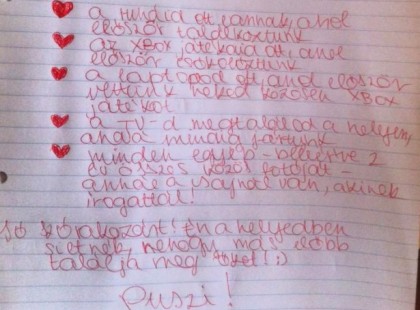 a ruháid ott vannak, ahol
először találkoztunk
az xbox játékaid ott, ahol
először csókolóztunk
a laptopod ott, ahol először
vettünk neked közösen xbox
játékot
a TV-d megtalálod a helyen,
ahova mindig jártunk
minden egyéb - beleértve 2
év összes közös fotóját -
annál a van, akinek
írogattál.
Jó kórakozást! Én a helyedben
sietnék, nehogy más előbb
találja meg őket! ;)
Puszi!